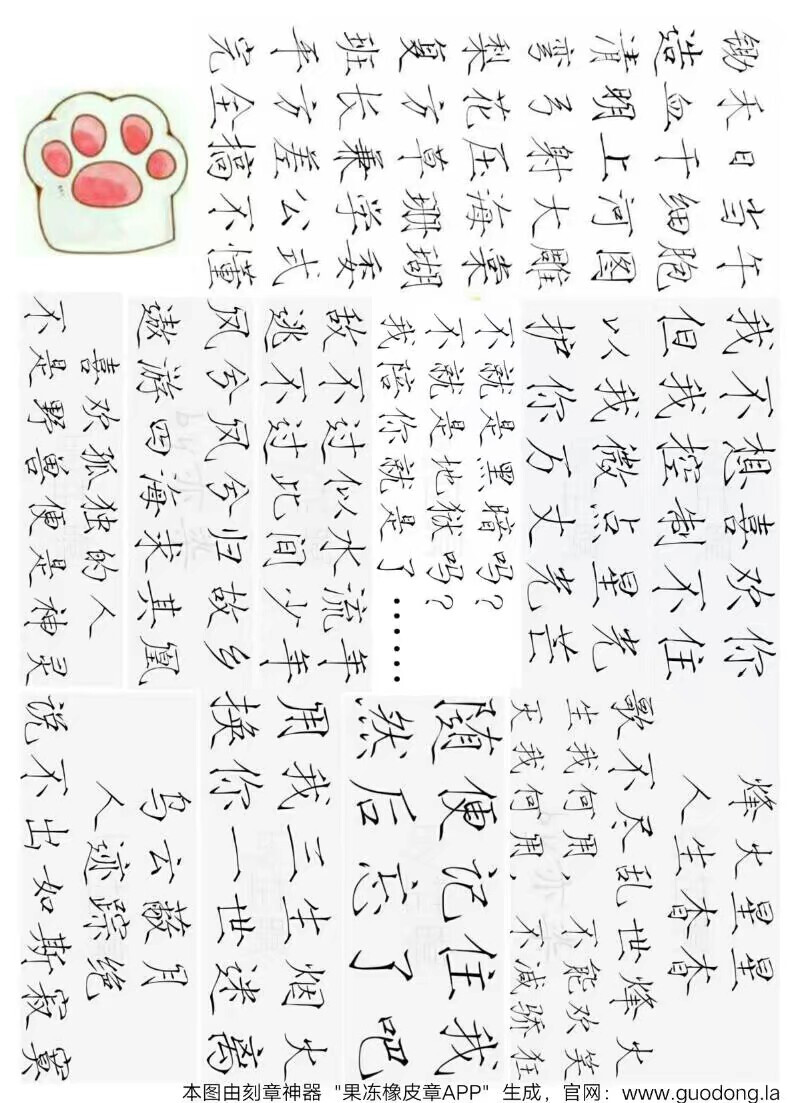 锄禾日当午
造血干细胞
清明上河图
弯弓射大雕
梨花压海棠
复方草珊瑚
班长兼学委
平方差公式
完全搞不懂
我不想喜欢你
但我控制不住
以我微点星光
护你万丈光芒
不就是黑暗吗?
不就是地狱吗?
我陪你就是了……
敌不过似水流年
逃不过此间少年
风兮风兮归故乡
遨游四海求其凰
喜欢孤独的人
不是野兽便是神灵
烽火星星
人生杳杳
歌不尽乱世烽火
生我何用,不能欢笑
灭我何用,不减骄狂
随便记住我
然后忘了吧
用我三生烟火
换你一世迷离
乌云蔽月
人迹踪绝
说不出如斯寂寞
本图由刻章神器 "果冻橡皮章APP" 生成，官网：www.guodong.la